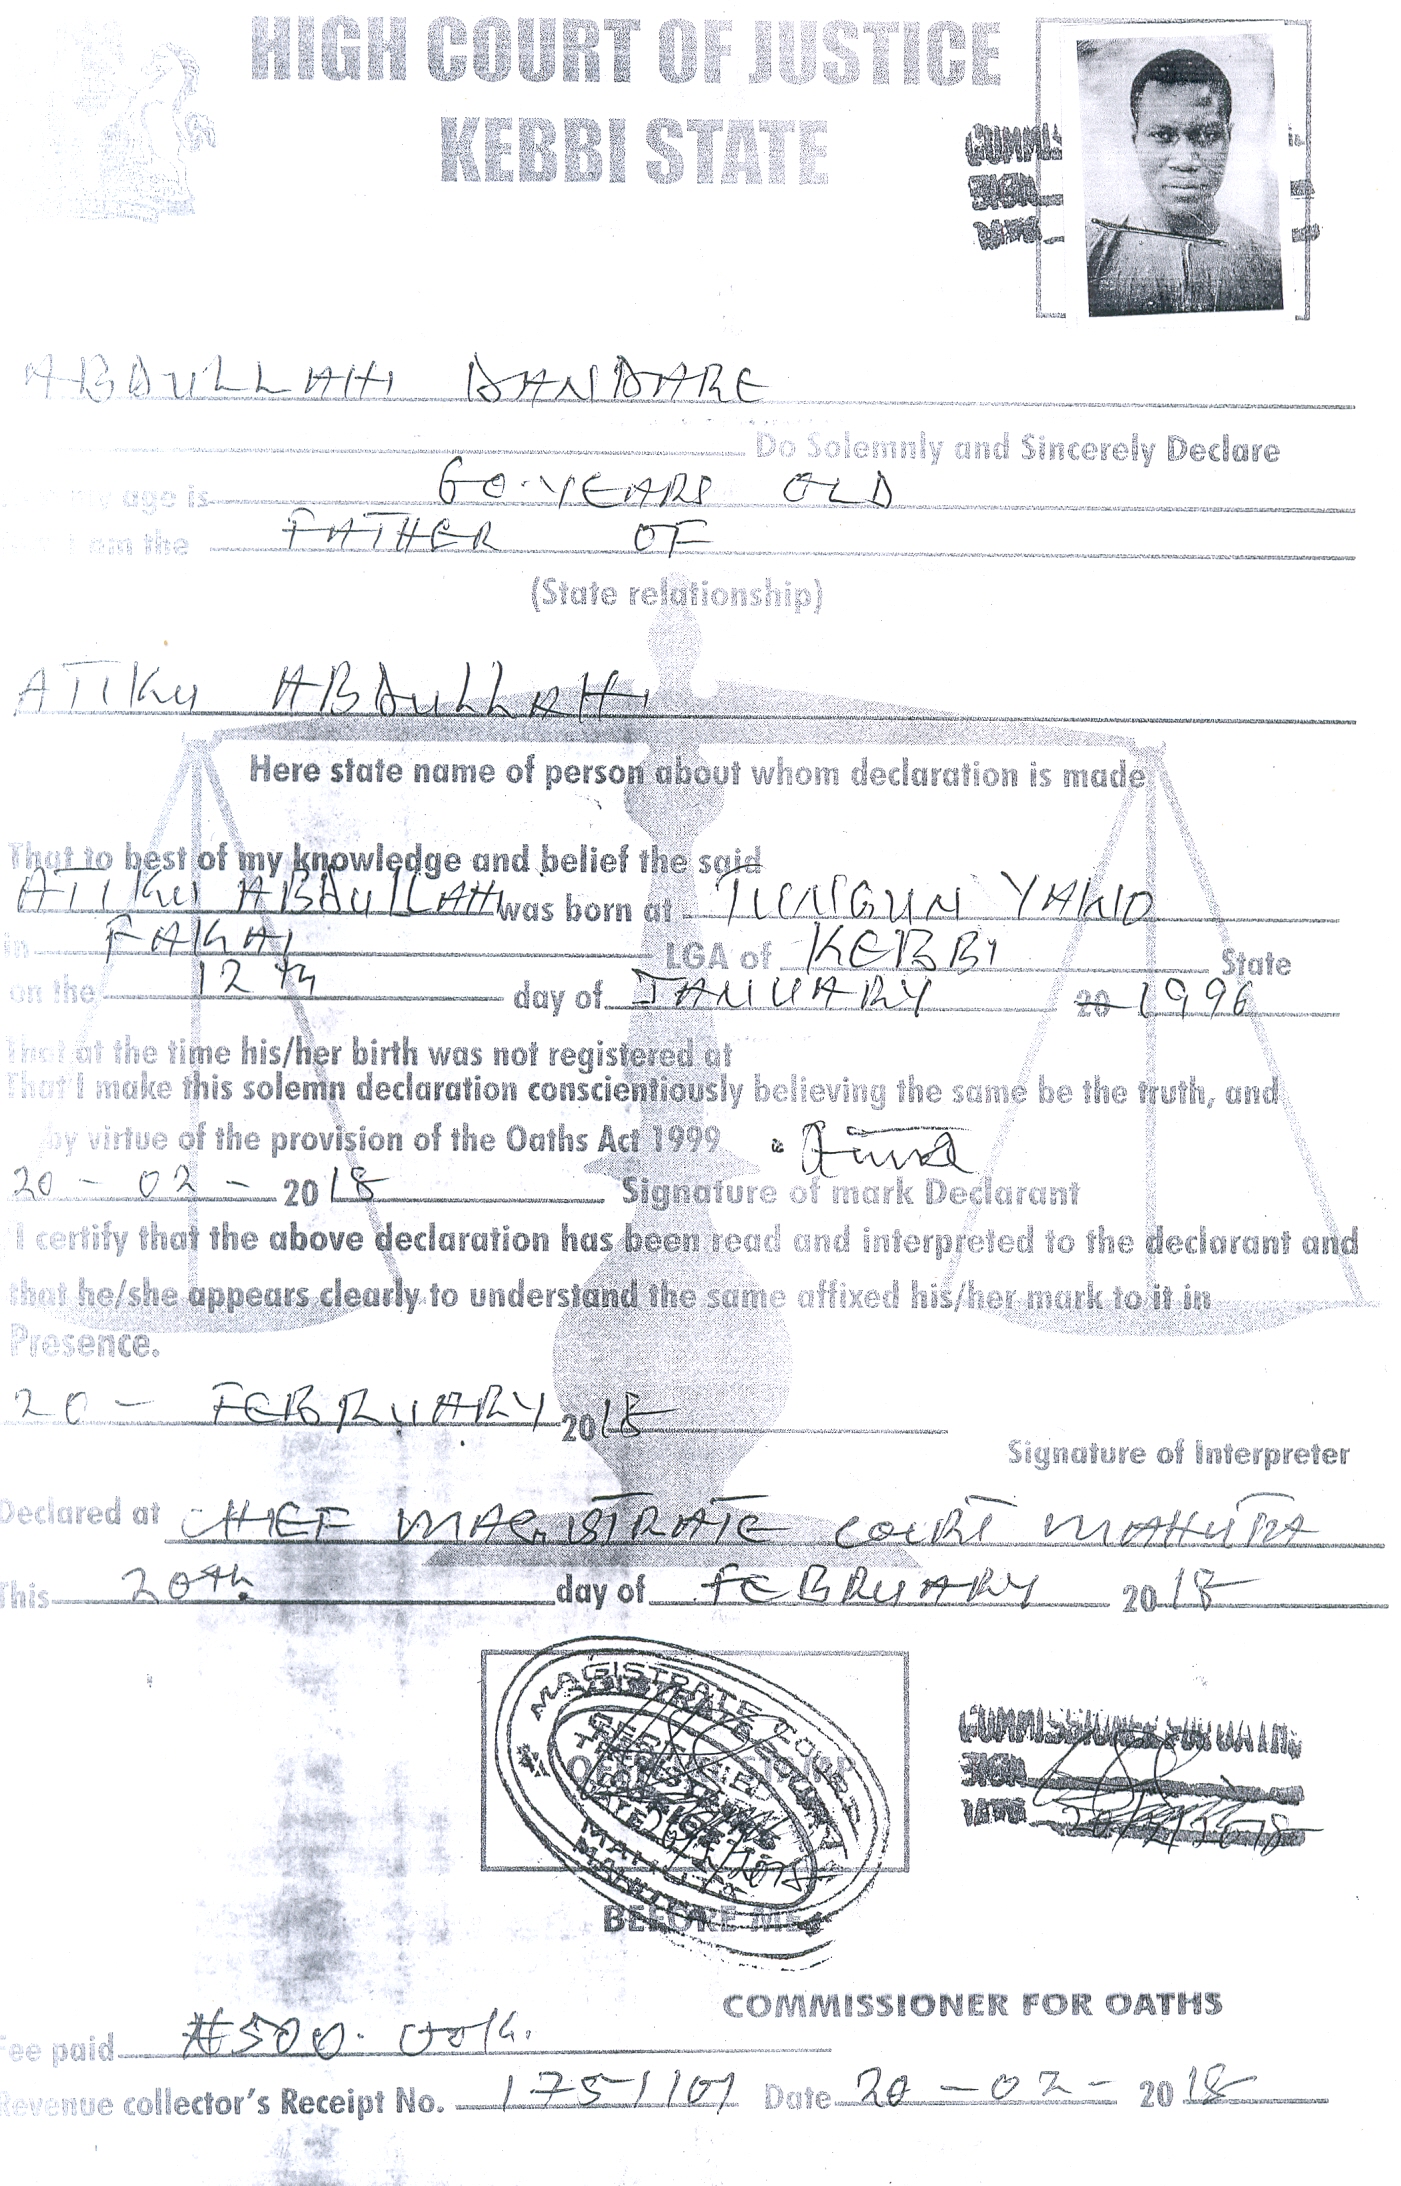 HIGH COURT OF JUSTICE
KEBBI STATE
ABDULLAHI DANDARE
Do Solemnly and Sincerely Declare
my age is 60 YEARS OLD
I am the FATHER OF
(State relationship)
ATIKU ABDULLAHI
Here state name of person about whom declaration is made
That to best of my knowledge and belief the said
ATIKU ABDULLAHI was born at TUNGUN YAWO
in FAKAI LGA of KEBBI State
on the 12th day of JANUARY 20 1996
That at the time his/her birth was not registered at
That I make this solemn declaration conscientiously believing the same be the truth, and
by virtue of the provision of the Oaths Act 1999
20 - 02 - 2018 Signature of mark Declarant
I certify that the above declaration has been read and interpreted to the declarant and
that he/she appears clearly to understand the same affixed his/her mark to it in
Presence.
20 - FEBRUARY 2018
Signature of Interpreter
Declared at CHIEF MAGISTRATE COURT MAHUTA
This 20th day of FEBRUARY 2018
MAGISTRATE COURT
COMMISSIONER FOR OATHS
SIGN
DATE 20/2/2018
BEFORE ME
COMMISSIONER FOR OATHS
Fee paid ₦500.00k.
Revenue collector's Receipt No. 1751101 Date 20 - 02 - 2018